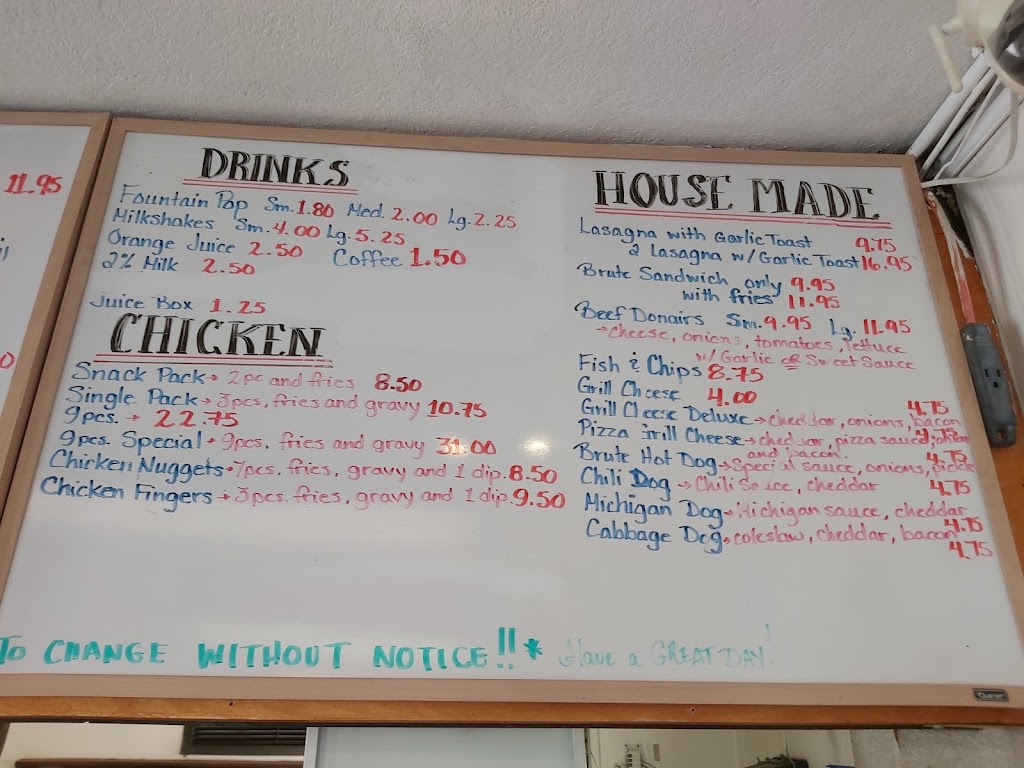 11.95
DRINKS
Fountain Pop Sm. 1.80 Med. 2.00 Lg. 2.25
Milkshakes Sm. 4.00 Lg. 5.25
Orange Juice 2.50 Coffee 1.50
2% Milk 2.50
Juice Box 1.25
CHICKEN
Snack Pack → 2pc and fries 8.50
Single Pack → 3pcs, fries and gravy 10.75
9pcs. → 22.75
9pcs. Special → 9pcs. fries and gravy 31.00
Chicken Nuggets → 7pcs. fries, gravy and 1 dip. 8.50
Chicken Fingers → 3pcs. fries, gravy and 1 dip. 9.50
HOUSE MADE
Lasagna with Garlic Toast 9.75
2 Lasagna w/ Garlic Toast 16.95
Brute Sandwich only 9.95
with fries 11.95
Beef Donairs Sm. 9.95 Lg. 11.95
→ cheese, onions, tomatoes, lettuce
w/ Garlic OR Sweet Sauce
Fish & Chips 8.75
Grill Cheese 4.00
Grill Cheese Deluxe → cheddar, onions, bacon 4.75
Pizza Grill Cheese → cheddar, pizza sauce, 4.75
and bacon.
Brute Hot Dog → Special sauce, onions, pickle 4.75
Chili Dog → Chili Sauce, cheddar 4.75
Michigan Dog → Michigan sauce, cheddar 4.75
Cabbage Dog → coleslaw, cheddar, bacon 4.75
TO CHANGE WITHOUT NOTICE!!* Have a GREAT DAY!
Quartet